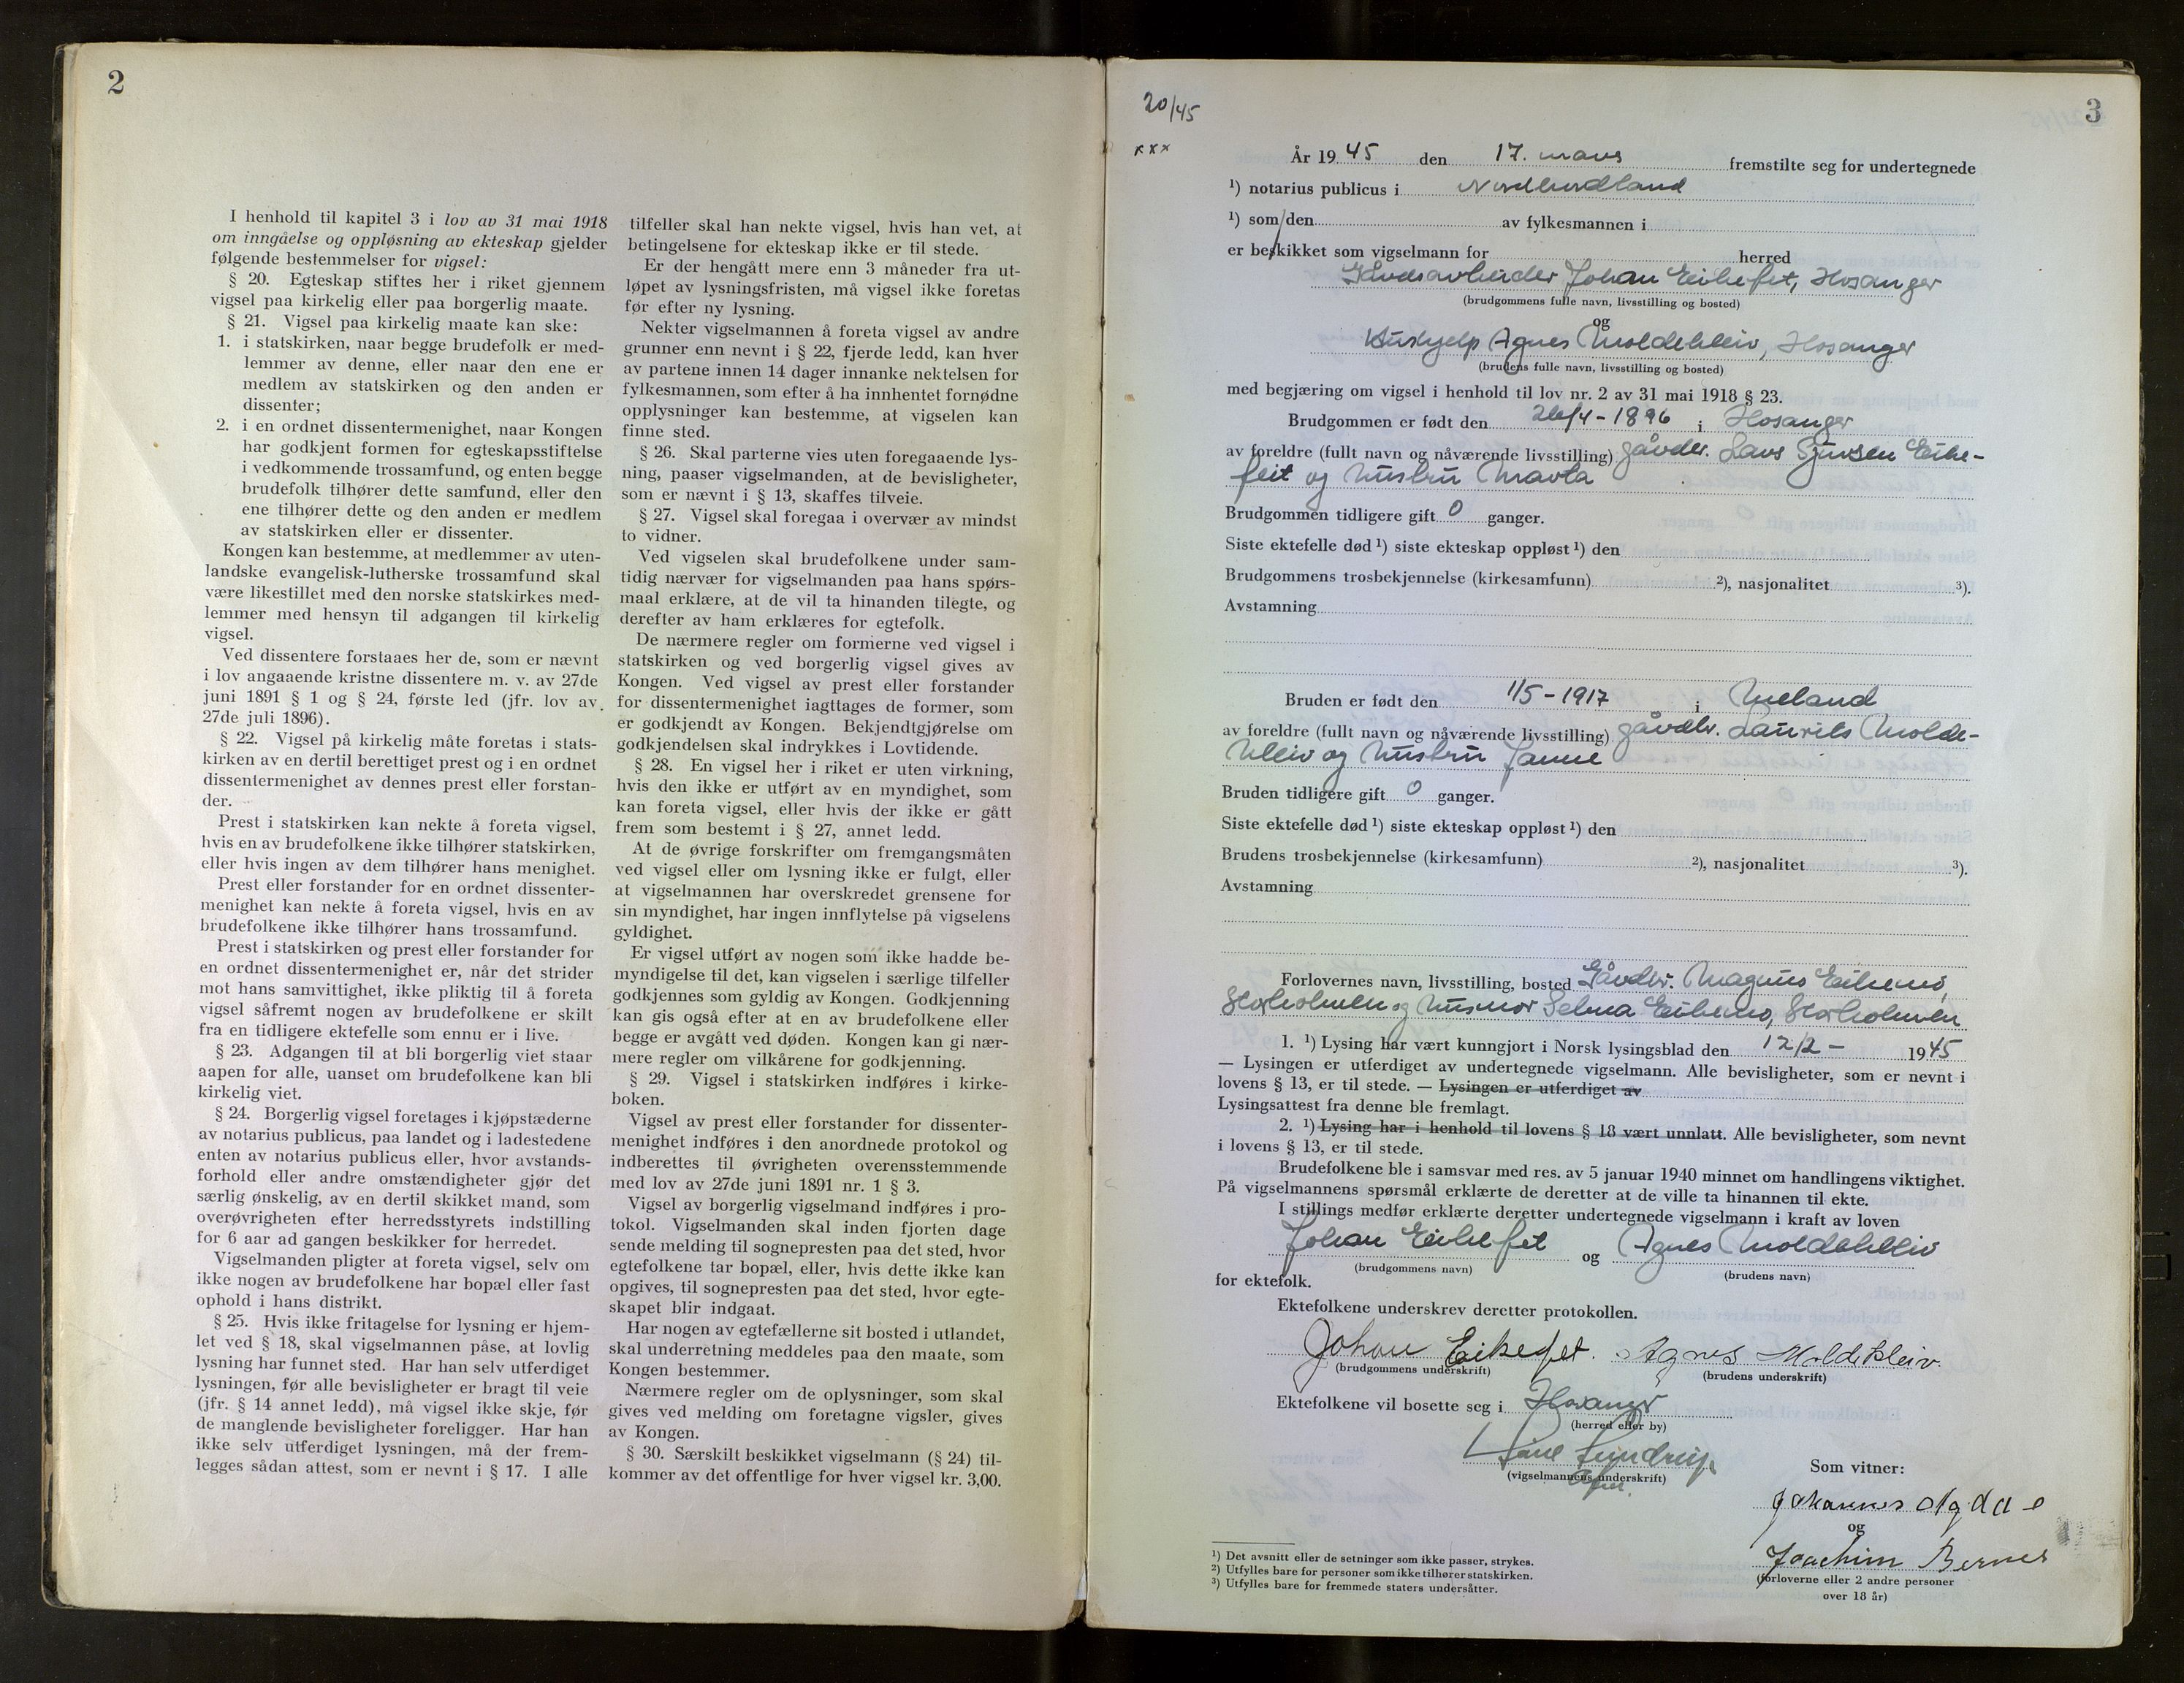 2
I henhold til kapitel 3 i lov av 31 mai 1918
om inngåelse og oppløsning av ekteskap gjelder
følgende bestemmelser for vigsel:
§ 20. Egteskap stiftes her i riket gjennem
vigsel paa kirkelig eller paa borgerlig maate.
§ 21. Vigsel paa kirkelig maate kan ske:
1. i statskirken, naar begge brudefolk er med-
lemmer av denne, eller naar den ene er
medlem av statskirken og den anden er
dissenter;
2. i en ordnet dissentermenighet, naar Kongen
har godkjent formen for egteskapsstiftelse
i vedkommende trossamfund, og enten begge
brudefolk tilhører dette samfund, eller den
ene tilhører dette og den anden er medlem
av statskirken eller er dissenter.
Kongen kan bestemme, at medlemmer av uten-
landske evangelisk-lutherske trossamfund skal
være likestillet med den norske statskirkes med-
lemmer med hensyn til adgangen til kirkelig
vigsel.
Ved dissentere forstaaes her de, som er nævnt
i lov angaaende kristne dissentere m. v. av 27de
juni 1891 § 1 og § 24, første led (jfr. lov av
27de juli 1896).
§ 22. Vigsel på kirkelig måte foretas i stats-
kirken av en dertil berettiget prest og i en ordnet
dissentermenighet av dennes prest eller forstan-
der.
Prest i statskirken kan nekte å foreta vigsel,
hvis en av brudefolkene ikke tilhører statskirken,
eller hvis ingen av dem tilhører hans menighet.
Prest eller forstander for en ordnet dissenter-
menighet kan nekte å foreta vigsel, hvis en av
brudefolkene ikke tilhører hans trossamfund.
Prest i statskirken og prest eller forstander for
en ordnet dissentermenighet er, når det strider
mot hans samvittighet, ikke pliktig til å foreta
vigsel såfremt nogen av brudefolkene er skilt
fra en tidligere ektefelle som ennu er i live.
§ 23. Adgangen til at bli borgerlig viet staar
aapen for alle, uanset om brudefolkene kan bli
kirkelig viet.
§ 24. Borgerlig vigsel foretages i kjøpstæderne
av notarius publicus, paa landet og i ladestedene
enten av notarius publicus eller, hvor avstands-
forhold eller andre omstændigheter gjør det
særlig ønskelig, av en dertil skikket mand, som
overøvrigheten efter herredsstyrets indstilling
for 6 aar ad gangen beskikker for herredet.
Vigselmanden pligter at foreta vigsel, selv om
ikke nogen av brudefolkene har bopæl eller fast
ophold i hans distrikt.
§ 25. Hvis ikke fritagelse for lysning er hjem-
let ved § 18, skal vigselmannen påse, at lovlig
lysning har funnet sted. Har han selv utferdiget
lysningen, før alle bevisligheter er bragt til veie
(jfr. § 14 annet ledd), må vigsel ikke skje, før
de manglende bevisligheter foreligger. Har han
ikke selv utferdiget lysningen, må der frem-
legges sådan attest, som er nevnt i § 17. I alle
tilfeller skal han nekte vigsel, hvis han vet, at
betingelsene for ekteskap ikke er til stede.
Er der hengått mere enn 3 måneder fra ut-
løpet av lysningsfristen, må vigsel ikke foretas
før efter ny lysning.
Nekter vigselmannen å foreta vigsel av andre
grunner enn nevnt i § 22, fjerde ledd, kan hver
av partene innen 14 dager innanke nektelsen for
fylkesmannen, som efter å ha innhentet fornødne
opplysninger kan bestemme, at vigselen kan
finne sted.
§ 26. Skal parterne vies uten foregaaende lys-
ning, paaser vigselmanden, at de bevisligheter,
som er nævnt i § 13, skaffes tilveie.
§ 27. Vigsel skal foregaa i overvær av mindst
to vidner.
Ved vigselen skal brudefolkene under sam-
tidig nærvær for vigselmanden paa hans spørs-
maal erklære, at de vil ta hinanden tilegte, og
derefter av ham erklæres for egtefolk.
De nærmere regler om formerne ved vigsel i
statskirken og ved borgerlig vigsel gives av
Kongen. Ved vigsel av prest eller forstander
for dissentermenighet iagttages de former, som
er godkjendt av Kongen. Bekjendtgjørelse om
godkjendelsen skal indrykkes i Lovtidende.
§ 28. En vigsel her i riket er uten virkning,
hvis den ikke er utført av en myndighet, som
kan foreta vigsel, eller hvis der ikke er gått
frem som bestemt i § 27, annet ledd.
At de øvrige forskrifter om fremgangsmåten
ved vigsel eller om lysning ikke er fulgt, eller
at vigselmannen har overskredet grensene for
sin myndighet, har ingen innflytelse på vigselens
gyldighet.
Er vigsel utført av nogen som ikke hadde be-
myndigelse til det, kan vigselen i særlige tilfeller
godkjennes som gyldig av Kongen. Godkjenning
kan gis også efter at en av brudefolkene eller
begge er avgått ved døden. Kongen kan gi nær-
mere regler om vilkårene for godkjenning.
§ 29. Vigsel i statskirken indføres i kirke-
boken.
Vigsel av prest eller forstander for dissenter-
menighet indføres i den anordnede protokol og
indberettes til øvrigheten overensstemmende
med lov av 27de juni 1891 nr. 1 § 3.
Vigsel av borgerlig vigselmand indføres i pro-
tokol. Vigselmanden skal inden fjorten dage
sende melding til sognepresten paa det sted, hvor
egtefolkene tar bopæl, eller, hvis dette ikke kan
opgives, til sognepresten paa det sted, hvor egte-
skapet blir indgaat.
Har nogen av egtefællerne sit bosted i utlandet,
skal underretning meddeles paa den maate, som
Kongen bestemmer.
Nærmere regler om de oplysninger, som skal
gives ved melding om foretagne vigsler, gives
av Kongen.
§ 30. Særskilt beskikket vigselmann (§ 24) til-
kommer av det offentlige for hver vigsel kr. 3,00.
20/45
xxx
3
År 1945 den 17. mars fremstilte seg for undertegnede
¹) notarius publicus i Nordhordland
¹) som den av fylkesmannen i
er beskikket som vigselmann for herred
Gårdsarbeider Johan Eikefet, Hosanger
(brudgommens fulle navn, livsstilling og bosted)
og
Hushjelp Agnes Moldekleiv, Hosanger
(brudens fulle navn, livsstilling og bosted)
med begjæring om vigsel i henhold til lov nr. 2 av 31 mai 1918 § 23.
Brudgommen er født den 26/4-1896 i Hosanger
av foreldre (fullt navn og nåværende livsstilling) gårdbr. Lars Sjursen Eike-
feit og hustru Marta
Brudgommen tidligere gift 0 ganger.
Siste ektefelle død¹) siste ekteskap oppløst¹) den
Brudgommens trosbekjennelse (kirkesamfunn) ²), nasjonalitet ³).
Avstamning
Bruden er født den 1/5-1917 i Meland
av foreldre (fullt navn og nåværende livsstilling) gårdbr. Laurits Molde-
kleiv og hustru Janne
Bruden tidligere gift 0 ganger.
Siste ektefelle død¹) siste ekteskap oppløst¹) den
Brudens trosbekjennelse (kirkesamfunn) ²), nasjonalitet ³).
Avstamning
Forlovernes navn, livsstilling, bosted Gårdbr. Magnus Eikemo,
Storholmen og husmor Selma Eikemo, Storholmen
1. ¹) Lysing har vært kunngjort i Norsk lysingsblad den 12/2 - 1945
— Lysingen er utferdiget av undertegnede vigselmann. Alle bevisligheter, som er nevnt i
lovens § 13, er til stede. — Lysingen er utferdiget av
Lysingsattest fra denne ble fremlagt.
2. ¹) Lysing har i henhold til lovens § 18 vært unnlatt. Alle bevisligheter, som nevnt
i lovens § 13, er til stede.
Brudefolkene ble i samsvar med res. av 5 januar 1940 minnet om handlingens viktighet.
På vigselmannens spørsmål erklærte de deretter at de ville ta hinannen til ekte.
I stillings medfør erklærte deretter undertegnede vigselmann i kraft av loven
Johan Eikefet og Agnes Moldekleiv
(brudgommens navn) (brudens navn)
for ektefolk.
Ektefolkene underskrev deretter protokollen.
Johan Eikefet. Agnes Moldekleiv.
(brudgommens underskrift) (brudens underskrift)
Ektefolkene vil bosette seg i Hosanger
(herred eller by)
(vigselmannens underskrift)
Som vitner:
Johannes
og
Joachim Bernes
(forloverne eller 2 andre personer
over 18 år)
¹) Det avsnitt eller de setninger som ikke passer, strykes.
²) Utfylles bare for personer som ikke tilhører statskirken.
³) Utfylles bare for fremmede staters undersåtter.